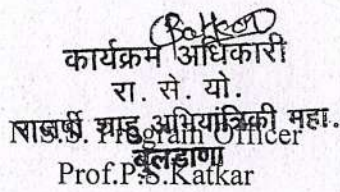 कार्यक्रम अधिकारी
रा. से. यो.
राजर्षी शाहू अभियांत्रिकी महा.
N.S.S. Program Officer
बुलडाणा
Prof.P.S.Katkar